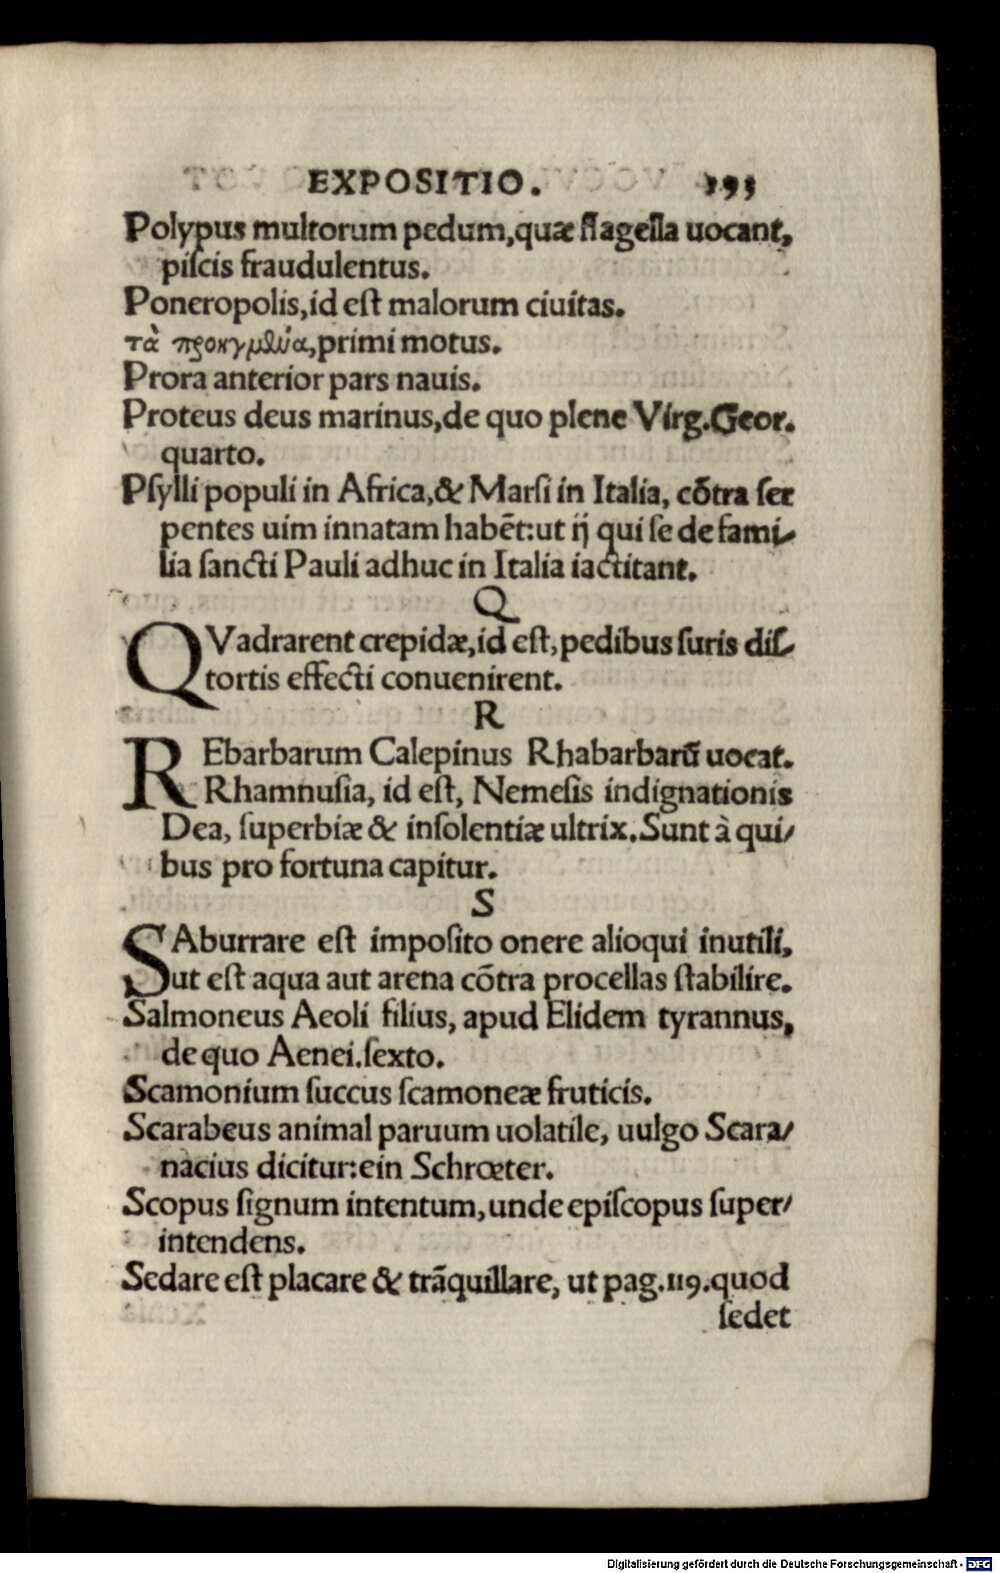 EXPOSITIO. 193
Polypus multorum pedum,quæ flagella uocant,
piſcis fraudulentus.
Poneropolis,id eſt malorum ciuitas.
τὰ προηγμένα,primi motus.
Prora anterior pars nauis.
Proteus deus marinus,de quo plene Virg.Geor.
quarto.
Pſylli populi in Africa,& Marſi in Italia, cõtra ſer
pentes uim innatam habẽt:ut ij qui ſe de fami⸗
lia ſancti Pauli adhuc in Italia iactitant.
Q
QVadrarent crepidæ,id eſt,pedibus ſuris diſ⸗
tortis effecti conuenirent.
R
REbarbarum Calepinus Rhabarbarũ uocat.
Rhamnuſia, id eſt, Nemeſis indignationis
Dea, ſuperbiæ & inſolentiæ ultrix.Sunt à qui⸗
bus pro fortuna capitur.
S
SAburrare eſt impoſito onere alioqui inutili,
ut eſt aqua aut arena cõtra procellas ſtabilire.
Salmoneus Aeoli filius, apud Elidem tyrannus,
de quo Aenei.ſexto.
Scamonium ſuccus ſcamoneæ fruticis.
Scarabeus animal paruum uolatile, uulgo Scara⸗
nacius dicitur:ein Schrœter.
Scopus ſignum intentum,unde epiſcopus ſuper⸗
intendens.
Sedare eſt placare & trãquillare, ut pag.119.quod
ſedet
Digitalisierung gefördert durch die Deutsche Forschungsgemeinschaft - DFG